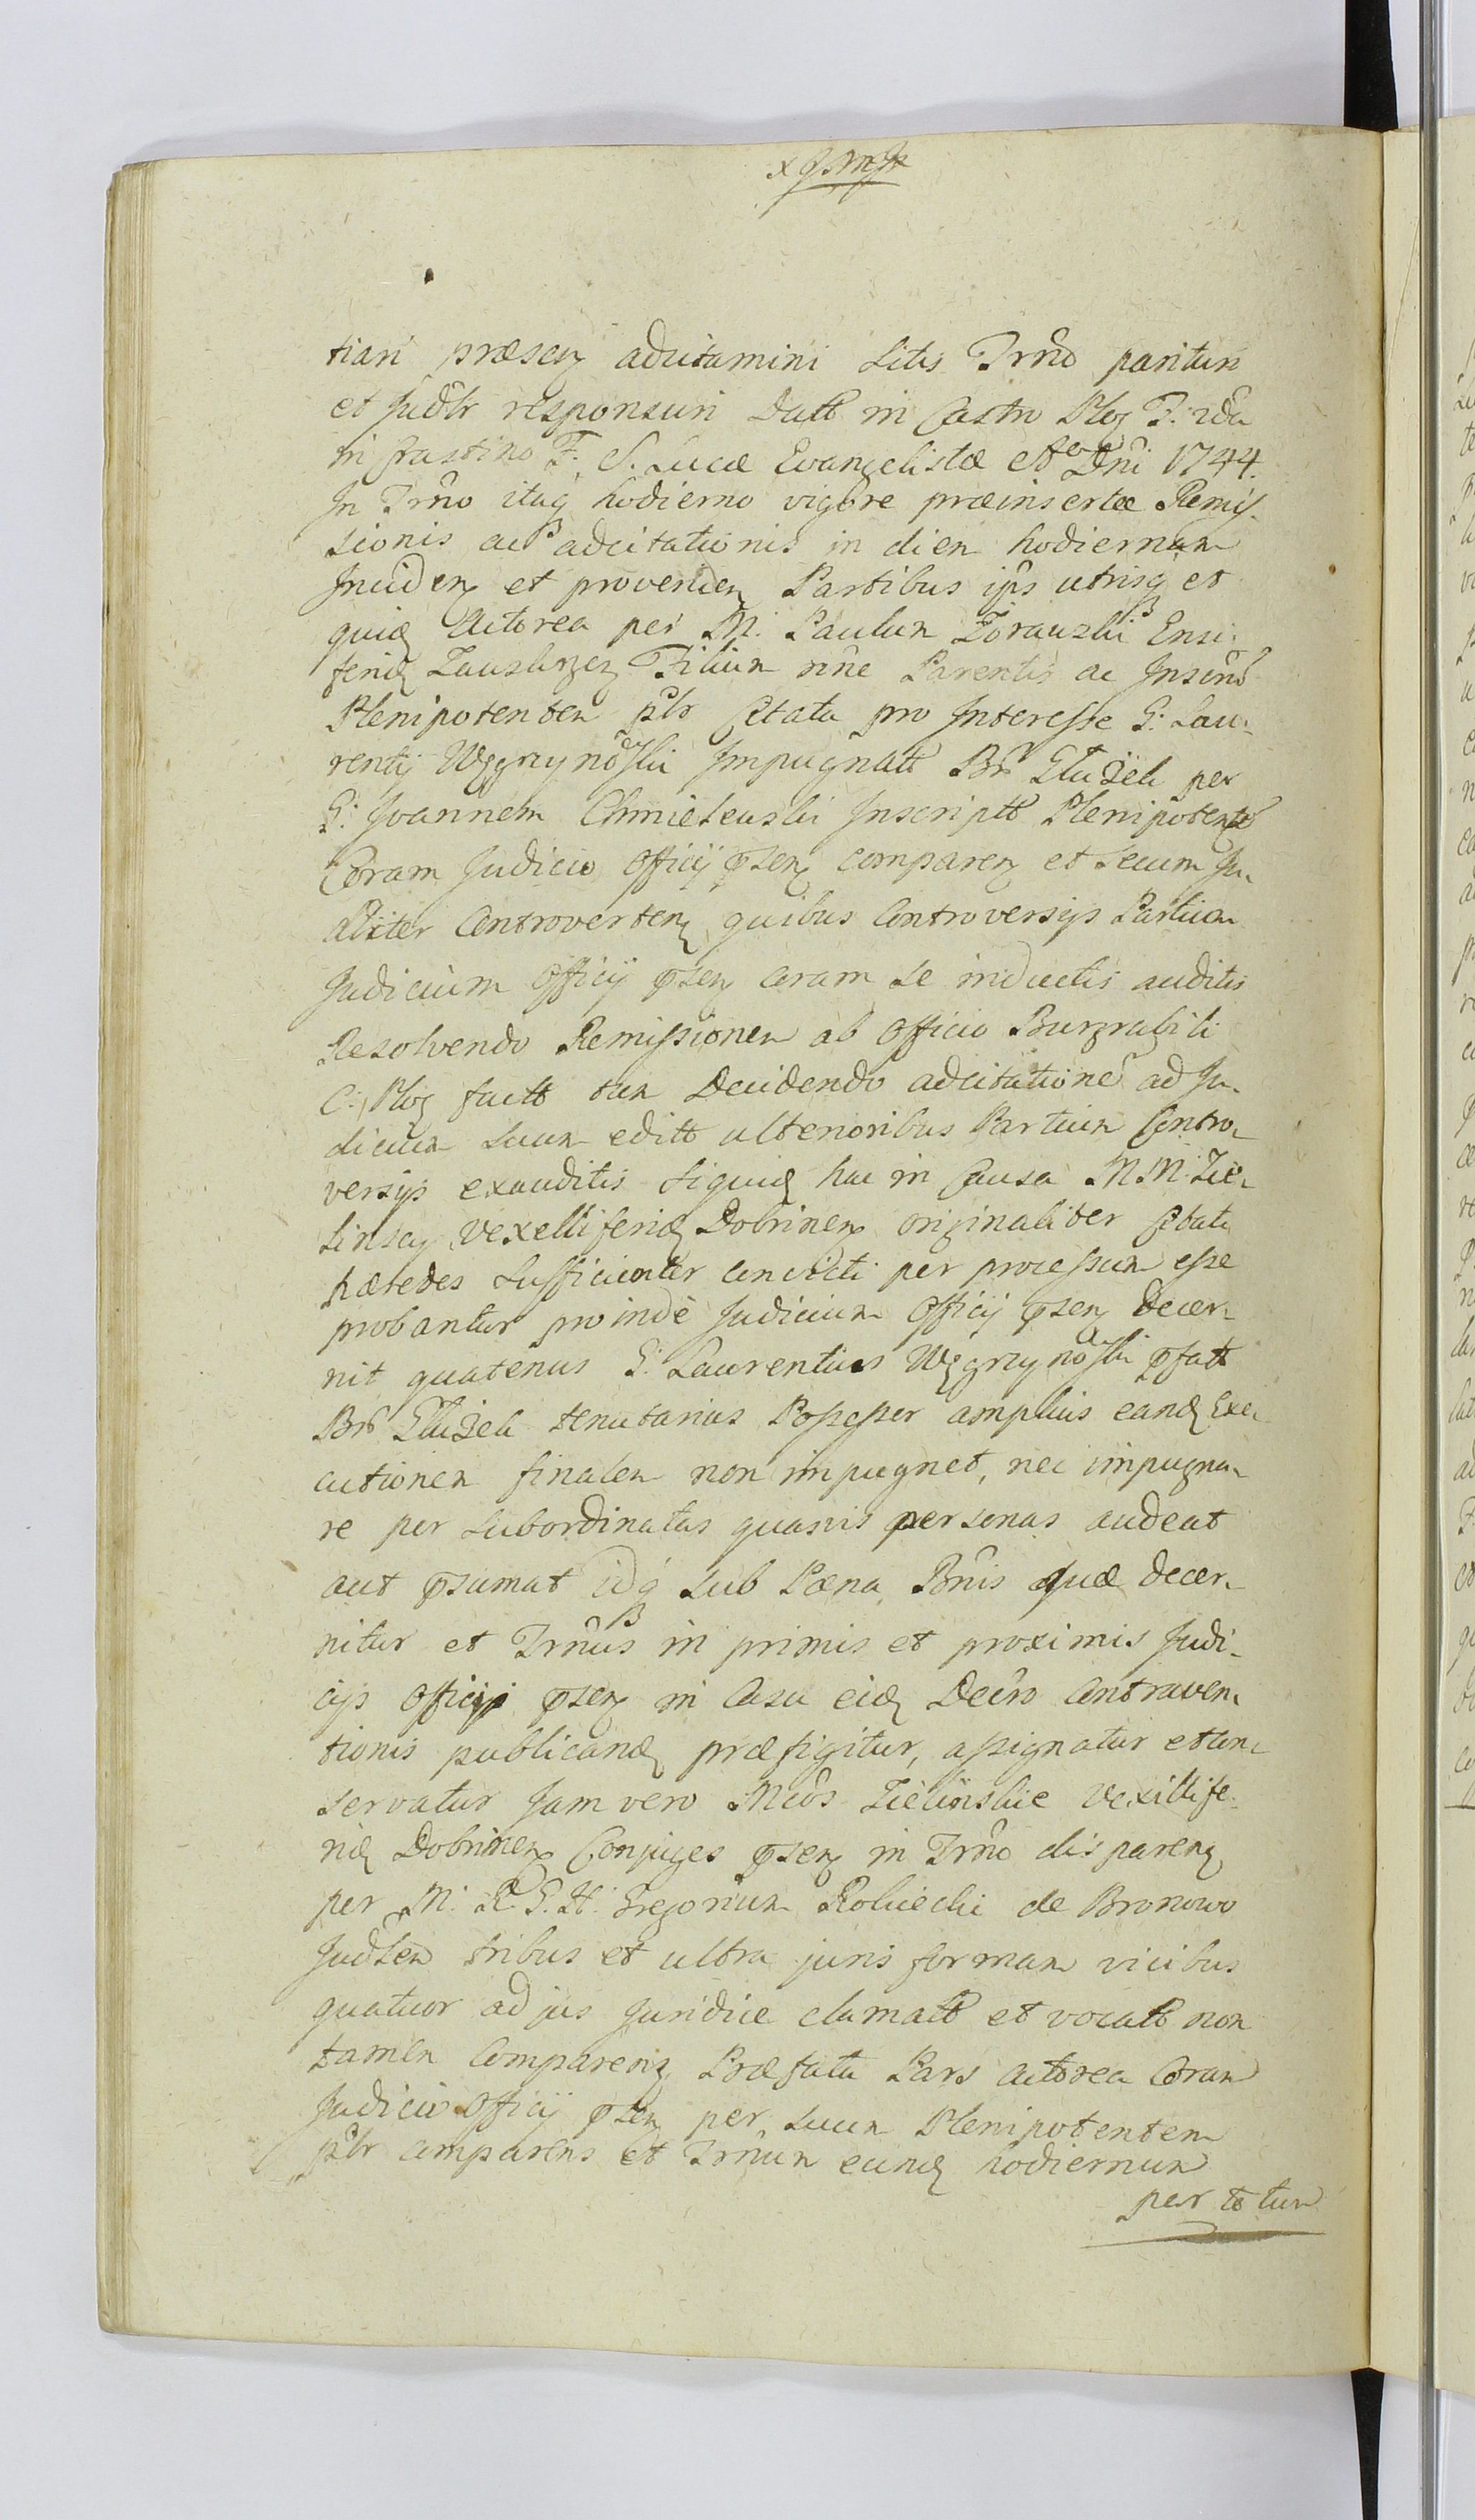 tiari præsen adcitamini Litis Trño parituri
et Judlr responsuri Datt in Castro Ploc F. 2da
in Crastino F. S. Lucæ Evangelistæ Ao Dñi 1744.
In Trño itaq hodierno vigore præinsertæ Remis-
sionis ac adcitationis in diem hodiernum
Inciden et provenien Partibus ips utrisq et
quid Actorea per M. Paulum Żorawski Ensi-
ferid Zauskrzen Filium nñe Parentis ac Inscrib
Plenipotentem plr Citata pro Interesse G: Lau-
rentij Węgrzynowski Impugnatt Br Głużek per
G: Joannem Chmielewski Inscriptt Plenipotente
Coram Judicio Officij psen comparen et secum Ju-
dlxiter Controverten quibus Controversijs Partium
Judicium Officij psen coram se inductis auditis
Resolvendo Remissionem ab Officio Burgrabili
C: Ploc factt tum Decidendo adcitatione ad Ju-
dicium suum editt ulterioribus Partium Contro-
versijs exauditis siquid hac in Causa M M: Zie-
linscy Vexelliferid Dobrinen originaliter Citati
hæredes sufficienter convicti per processum esse
probantur proinde Judicium Officij psen decer-
nit quatenus G: Laurentius Węgrzynowski pfatt
Br Głużek tenutarius Possessor amplius eand Exe-
cutionem finalem non impugnet, nec impugna-
re per subordinatas quasvis personas audeat
aut psumat idq sub Pæna Bñis quæ decer-
nitur et Trñus in primis et proximis Judi-
cijs Officij psen in Casu eid Decro Contraven-
tionis publicand præfigitur, assignatur et con-
servatur Jam vero Mcos Zielinskie Vexillife-
rid Dobrinen Conjuges psen in Trño disparen
per M. R. G. H. Gregorium Rokicki de Bronowo
Judlem tribus et ultra juris formam vicibus
quatuor ad jus Juridice clamatt et vocatt non
tamen Comparen Præfata Pars actorea Coram
Judicio Officij psen per suum Plenipotentem
plr comparens et Trñum eund hodiernum
per totum